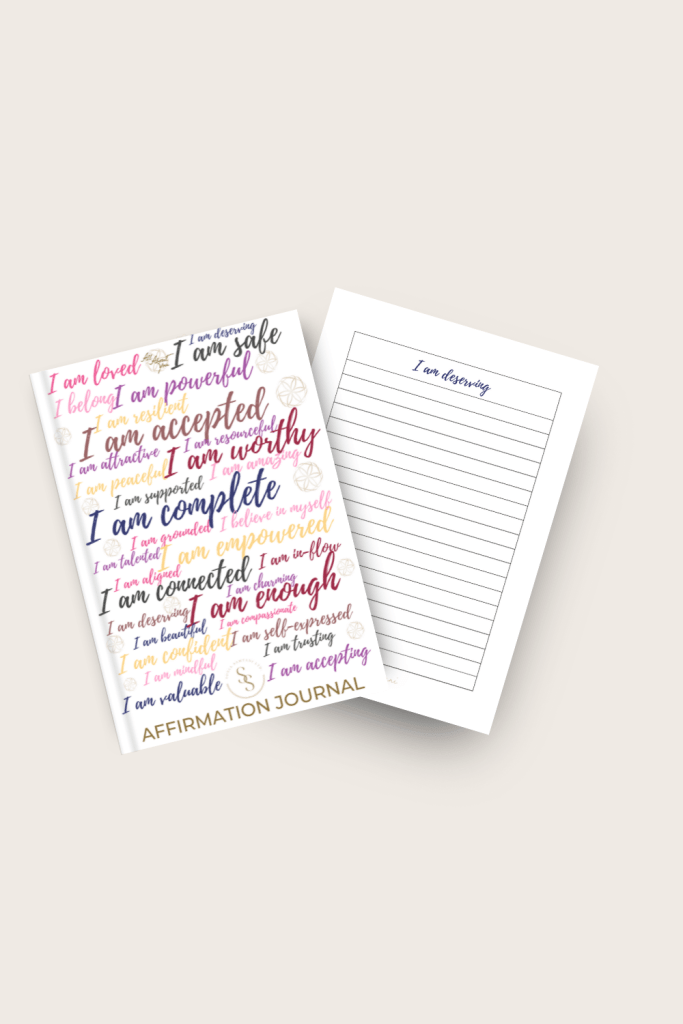 I am deserving
I am loved
I am safe
I belong
I am powerful
I am resilient
I am accepted
I am resourceful
I am attractive
I am worthy
I am peaceful
I am amazing
I am supported
I am complete
I believe in myself
I am grounded
I am talented
I am empowered
I am in-flow
I am aligned
I am connected
I am charming
I am enough
I am deserving
I am compassionate
I am beautiful
I am self-expressed
I am confident
I am trusting
I am mindful
I am accepting
I am valuable
SS
AFFIRMATION JOURNAL
I am deserving